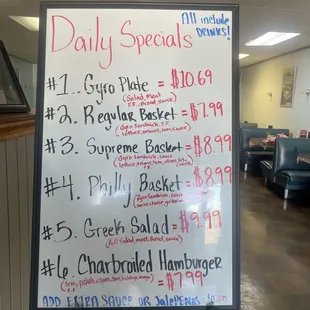 Daily Specials
All include
DRINKS!
#1. Gyro Plate = $10.69
(Salad, Meat
F.F. Bread, sauce)
#2. Regular Basket = $7.99
(Gyro Sandwich, F.F.
lettuce, onions, tom, sauce)
#3. Supreme Basket = $8.99
(Gyro Sandwich, sauce
#4. Philly Basket = $8.99
#5. Greek Salad = $9.99
(Full Salad, meat, Bread, sauce)
#6. Charbroiled Hamburger
= $7.99
F.F.
ADD EXTRA SAUCE OR JalePENOS